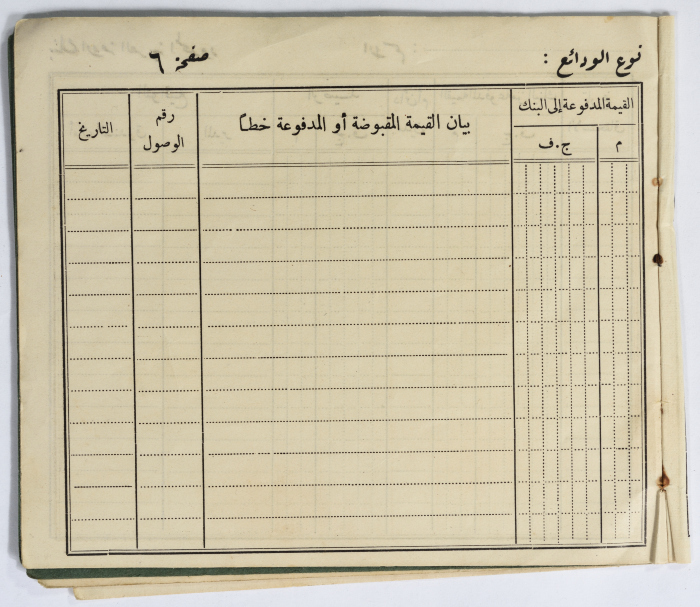 نوع الودائع :
صفحة ٦
القيمة المدفوعة إلى البنك
م
ج . ف
بيان القيمة المقبوضة أو المدفوعة خطاً
رقم
الوصول
التاريخ